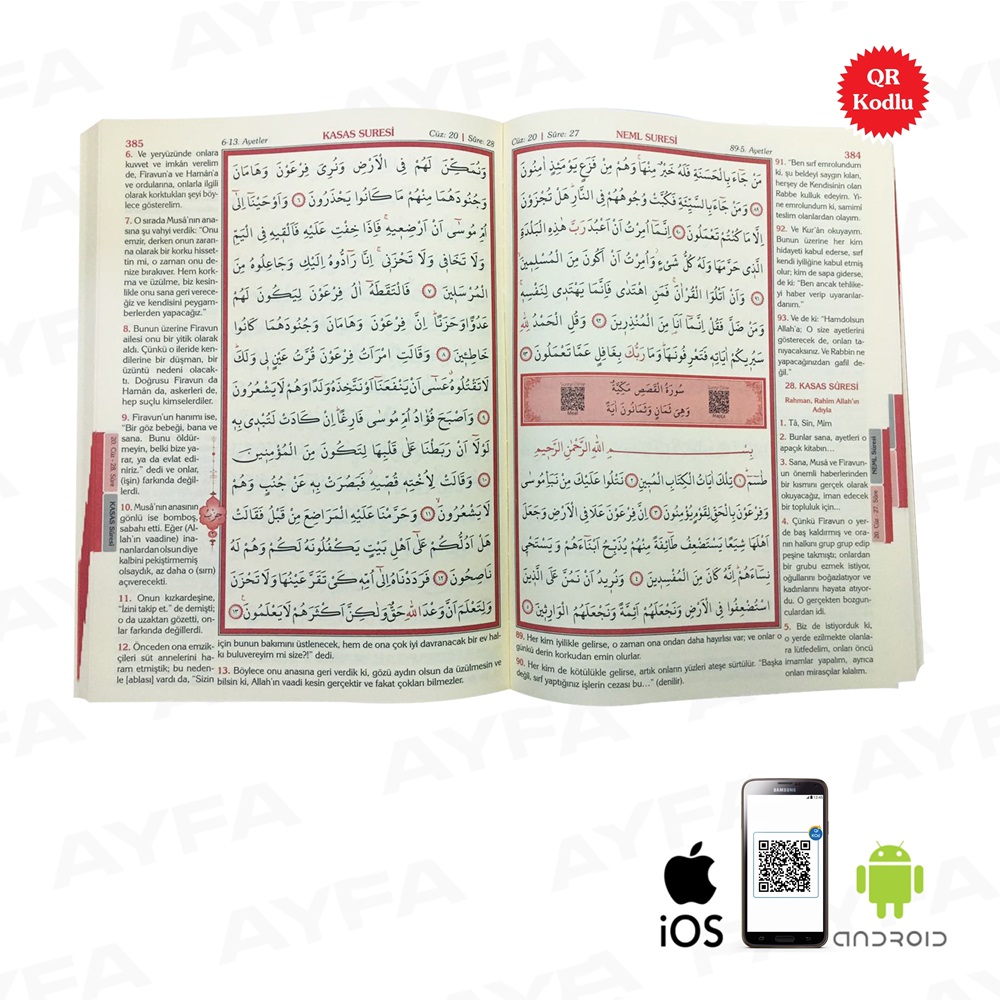 QR
Kodlu
384
NEML SURESİ
Cüz: 20 | Sûre: 27
89-5. Ayetler
مَنْ جَٓاءَ بِالْحَسَنَةِ فَلَهُ خَيْرٌ مِنْهَاۚ وَهُمْ مِنْ فَزَعٍ يَوْمَئِذٍ اٰمِنُونَ
﴿٨٩﴾ وَمَنْ جَٓاءَ بِالسَّيِّئَةِ فَكُبَّتْ وُجُوهُهُمْ فِي النَّارِۜ هَلْ تُجْزَوْنَ
اِلَّا مَا كُنْتُمْ تَعْمَلُونَ ﴿٩٠﴾ اِنَّمَٓا اُمِرْتُ اَنْ اَعْبُدَ رَبَّ هٰذِهِ الْبَلْدَةِ
الَّذ۪ي حَرَّمَهَا وَلَهُ كُلُّ شَيْءٍۘ وَاُمِرْتُ اَنْ اَكُونَ مِنَ الْمُسْلِم۪ينَۙ
﴿٩١﴾ وَاَنْ اَتْلُوَا الْقُرْاٰنَۚ فَمَنِ اهْتَدٰى فَاِنَّمَا يَهْتَد۪ي لِنَفْسِه۪ۚ
وَمَنْ ضَلَّ فَقُلْ اِنَّمَٓا اَنَا۬ مِنَ الْمُنْذِر۪ينَ ﴿٩٢﴾ وَقُلِ الْحَمْدُ لِلّٰهِ
سَيُر۪يكُمْ اٰيَاتِه۪ فَتَعْرِفُونَهَاۜ وَمَا رَبُّكَ بِغَافِلٍ عَمَّا تَعْمَلُونَ ﴿٩٣﴾
سُورَةُ الْقَصَصِ مَكِّيَّةٌ
وَهِيَ ثَمَانٍ وَثَمَانُونَ اٰيَةً
بِسْمِ اللّٰهِ الرَّحْمٰنِ الرَّح۪يمِ
طٰسٓمٓ ﴿١﴾ تِلْكَ اٰيَاتُ الْكِتَابِ الْمُب۪ينِ ﴿٢﴾ نَتْلُوا عَلَيْكَ مِنْ نَبَأِ مُوسٰى
وَفِرْعَوْنَ بِالْحَقِّ لِقَوْمٍ يُؤْمِنُونَ ﴿٣﴾ اِنَّ فِرْعَوْنَ عَلَا فِي الْاَرْضِ وَجَعَلَ
اَهْلَهَا شِيَعًا يَسْتَضْعِفُ طَٓائِفَةً مِنْهُمْ يُذَبِّحُ اَبْنَٓاءَهُمْ وَيَسْتَحْي۪
نِسَٓاءَهُمْۜ اِنَّهُ كَانَ مِنَ الْمُفْسِد۪ينَ ﴿٤﴾ وَنُر۪يدُ اَنْ نَمُنَّ عَلَى الَّذ۪ينَ
اسْتُضْعِفُوا فِي الْاَرْضِ وَنَجْعَلَهُمْ اَئِمَّةً وَنَجْعَلَهُمُ الْوَارِث۪ينَۙ ﴿٥﴾
89. Her kim iyilikle gelirse, o zaman ona ondan daha hayırlısı var; ve onlar o
günkü derin korkudan emin olurlar.
90. Her kim de kötülükle gelirse, artık onların yüzleri ateşe sürtülür. “Başka
değil, sırf yaptığınız işlerin cezası bu...” (denilir).
91. “Ben sırf emrolundum
ki, şu beldeyi saygın kılan,
herşey de Kendisinin olan
Rabbe kulluk edeyim. Yi-
ne emrolundum ki, samimi
teslim olanlardan olayım.
92. Ve Kur'ân okuyayım.
Bunun üzerine her kim
hidayeti kabul ederse, sırf
kendi iyiliğine kabul etmiş
olur; kim de sapa giderse,
de ki: “Ben ancak tehlike-
yi haber verip uyaranlar-
danım.”
93. Ve de ki: “Hamdolsun
Allah'a; O size ayetlerini
gösterecek de, onları ta-
nıyacaksınız. Ve Rabbin ne
yapacağınızdan gafil de-
ğil.”
28. KASAS SÛRESİ
Rahman, Rahîm Allah'ın
Adıyla
1. Tâ, Sîn, Mîm
2. Bunlar sana, ayetleri o
apaçık kitabın...
3. Sana, Musâ ve Firavun-
un önemli haberlerinden
bir kısmını gerçek olarak
okuyacağız, iman edecek
bir topluluk için...
4. Çünkü Firavun o yer-
de baş kaldırmış ve ora-
nın halkını grup grup edip
peşine takmıştı; onlardan
bir grubu ezmek istiyor,
oğullarını boğazlatıyor ve
kadınlarını hayata atıyor-
du. O gerçekten bozgun-
culardan idi.
5. Biz de istiyorduk ki,
o yerde ezilmekte olanla-
ra lütfedelim, onları öncü
imamlar yapalım, ayrıca
onları mirasçılar kılalım.
NEML Sûresi
20. Cüz - 27. Sûre
385
6-13. Ayetler
KASAS SURESİ
Cüz: 20 | Sûre: 28
وَنُمَكِّنَ لَهُمْ فِي الْاَرْضِ وَنُرِيَ فِرْعَوْنَ وَهَامَانَ
وَجُنُودَهُمَا مِنْهُمْ مَا كَانُوا يَحْذَرُونَ ﴿٦﴾ وَاَوْحَيْنَٓا اِلٰٓى
اُمِّ مُوسٰٓى اَنْ اَرْضِع۪يهِۚ فَاِذَا خِفْتِ عَلَيْهِ فَاَلْق۪يهِ فِي الْيَمِّ
وَلَا تَخَاف۪ي وَلَا تَحْزَن۪يۚ اِنَّا رَٓادُّوهُ اِلَيْكِ وَجَاعِلُوهُ مِنَ
الْمُرْسَل۪ينَ ﴿٧﴾ فَالْتَقَطَهُٓ اٰلُ فِرْعَوْنَ لِيَكُونَ لَهُمْ
عَدُوًّا وَحَزَنًاۜ اِنَّ فِرْعَوْنَ وَهَامَانَ وَجُنُودَهُمَا كَانُوا
خَاطِـ۪ٔينَ ﴿٨﴾ وَقَالَتِ امْرَاَتُ فِرْعَوْنَ قُرَّتُ عَيْنٍ ل۪ي وَلَكَۜ
لَا تَقْتُلُوهُۗ عَسٰٓى اَنْ يَنْفَعَنَٓا اَوْ نَتَّخِذَهُ وَلَدًا وَهُمْ لَا يَشْعُرُونَ
﴿٩﴾ وَاَصْبَحَ فُؤٰادُ اُمِّ مُوسٰى فَارِغًاۜ اِنْ كَادَتْ لَتُبْد۪ي بِه۪
لَوْلَٓا اَنْ رَبَطْنَا عَلٰى قَلْبِهَا لِتَكُونَ مِنَ الْمُؤْمِن۪ينَ
﴿١٠﴾ وَقَالَتْ لِاُخْتِه۪ قُصّ۪يهِۘ فَبَصُرَتْ بِه۪ عَنْ جُنُبٍ وَهُمْ
لَا يَشْعُرُونَۙ ﴿١١﴾ وَحَرَّمْنَا عَلَيْهِ الْمَرَاضِعَ مِنْ قَبْلُ فَقَالَتْ
هَلْ اَدُلُّكُمْ عَلٰٓى اَهْلِ بَيْتٍ يَكْفُلُونَهُ لَكُمْ وَهُمْ لَهُ
نَاصِحُونَ ﴿١٢﴾ فَرَدَدْنَاهُ اِلٰٓى اُمِّه۪ كَيْ تَقَرَّ عَيْنُهَا وَلَا تَحْزَنَ
وَلِتَعْلَمَ اَنَّ وَعْدَ اللّٰهِ حَقٌّ وَلٰكِنَّ اَكْثَرَهُمْ لَا يَعْلَمُونَ ﴿١٣﴾
6. Ve yeryüzünde onlara
kuvvet ve imkân verelim
de, Firavun'a ve Hamân'a
ve ordularına, onlarla ilgili
olarak korktukları şeyi böy-
lece gösterelim.
7. O sırada Musâ'nın ana-
sına şu vahyi verdik: “Onu
emzir, derken onun zararı-
na olarak bir korku hisset-
tin mi, o zaman onu de-
nize bırakıver. Hem kork-
ma ve üzülme, biz kesin-
likle onu sana geri verece-
ğiz ve kendisini peygam-
berlerden yapacağız.”
8. Bunun üzerine Firavun
ailesi onu bir yitik olarak
aldı. Çünkü o ileride ken-
dilerine bir düşman, bir
üzüntü nedeni olacak-
tı. Doğrusu Firavun da
Hamân da, askerleri de,
hep suçlu kimselerdiler.
9. Firavun'un hanımı ise,
“Bir göz bebeği, bana ve
sana. Bunu öldür-
meyin, belki bize yara-
r, ya da evlat edi-
niriz.” dedi ve onlar,
(işin) farkında değil-
lerdi.
10. Musâ'nın anasının
gönlü ise bomboş,
sabahı etti. Eğer (Al-
lah'ın vaadine) ina-
nanlardan olsun diye
kalbini pekiştirmemiş
olsaydık, az daha o (sırrı)
açıverecekti.
11. Onun kızkardeşine,
“İzini takip et.” de demişti;
o da uzaktan gözetti, on-
lar farkında değillerdi.
12. Önceden ona emzik-
çileri süt annelerini ha-
ram etmiştik; bu neden-
le [ablası] vardı da, “Sizin
için bunun bakımını üstlenecek, hem de ona çok iyi davranacak bir ev hal-
kı buluvereyim mi size?!” dedi.
13. Böylece onu anasına geri verdik ki, gözü aydın olsun da üzülmesin ve
bilsin ki, Allah'ın vaadi kesin gerçektir ve fakat çokları bilmezler.
20. Cüz - 28. Sûre
KASAS Sûresi
SAMSUNG
iOS
ANDROID
AYFA